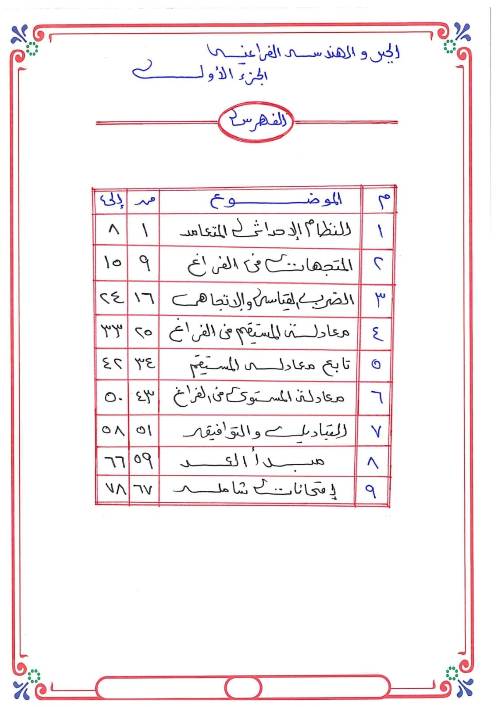 الجبر والهندسة الفراغية
الجزء الأول
الفهرس
م الموضوع من إلى
١ النظام الإحداثى المتعامد ١ ٨
٢ المتجهات فى الفراغ ٩ ١٥
٣ الضرب القياسى والإتجاهى ١٦ ٢٤
٤ معادلة المستقيم فى الفراغ ٢٥ ٣٣
٥ تابع معادلة المستقيم ٣٤ ٤٢
٦ معادلة المستوى فى الفراغ ٤٣ ٥٠
٧ التباديل والتوافيق ٥١ ٥٨
٨ مبدأ العد ٥٩ ٦٦
٩ إمتحانات شاملة ٦٧ ٧٨